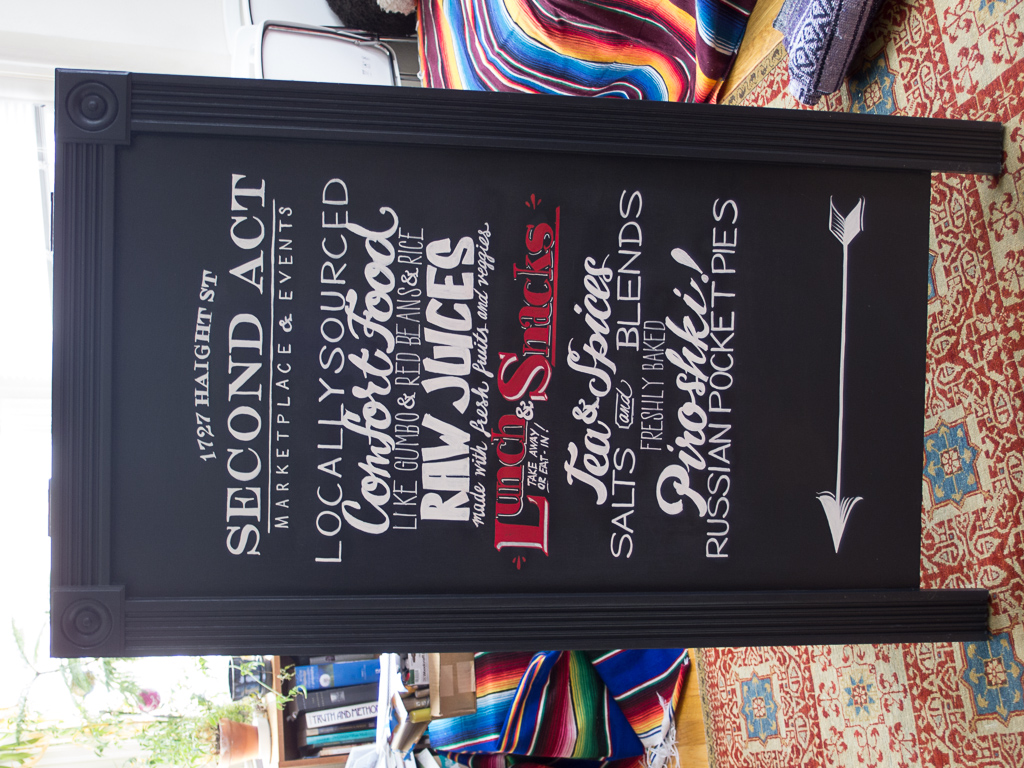 1727 HAIGHT ST
SECOND ACT
MARKETPLACE & EVENTS
LOCALLY SOURCED
Comfort Food
LIKE GUMBO & RED BEANS & RICE
RAW JUICES
made with fresh fruits and veggies
Lunch & Snacks
TAKE AWAY
OR EAT-IN!
Tea & Spices
SALTS and BLENDS
FRESHLY BAKED
Piroshki!
RUSSIAN POCKET PIES
TRUTH AND METHOD